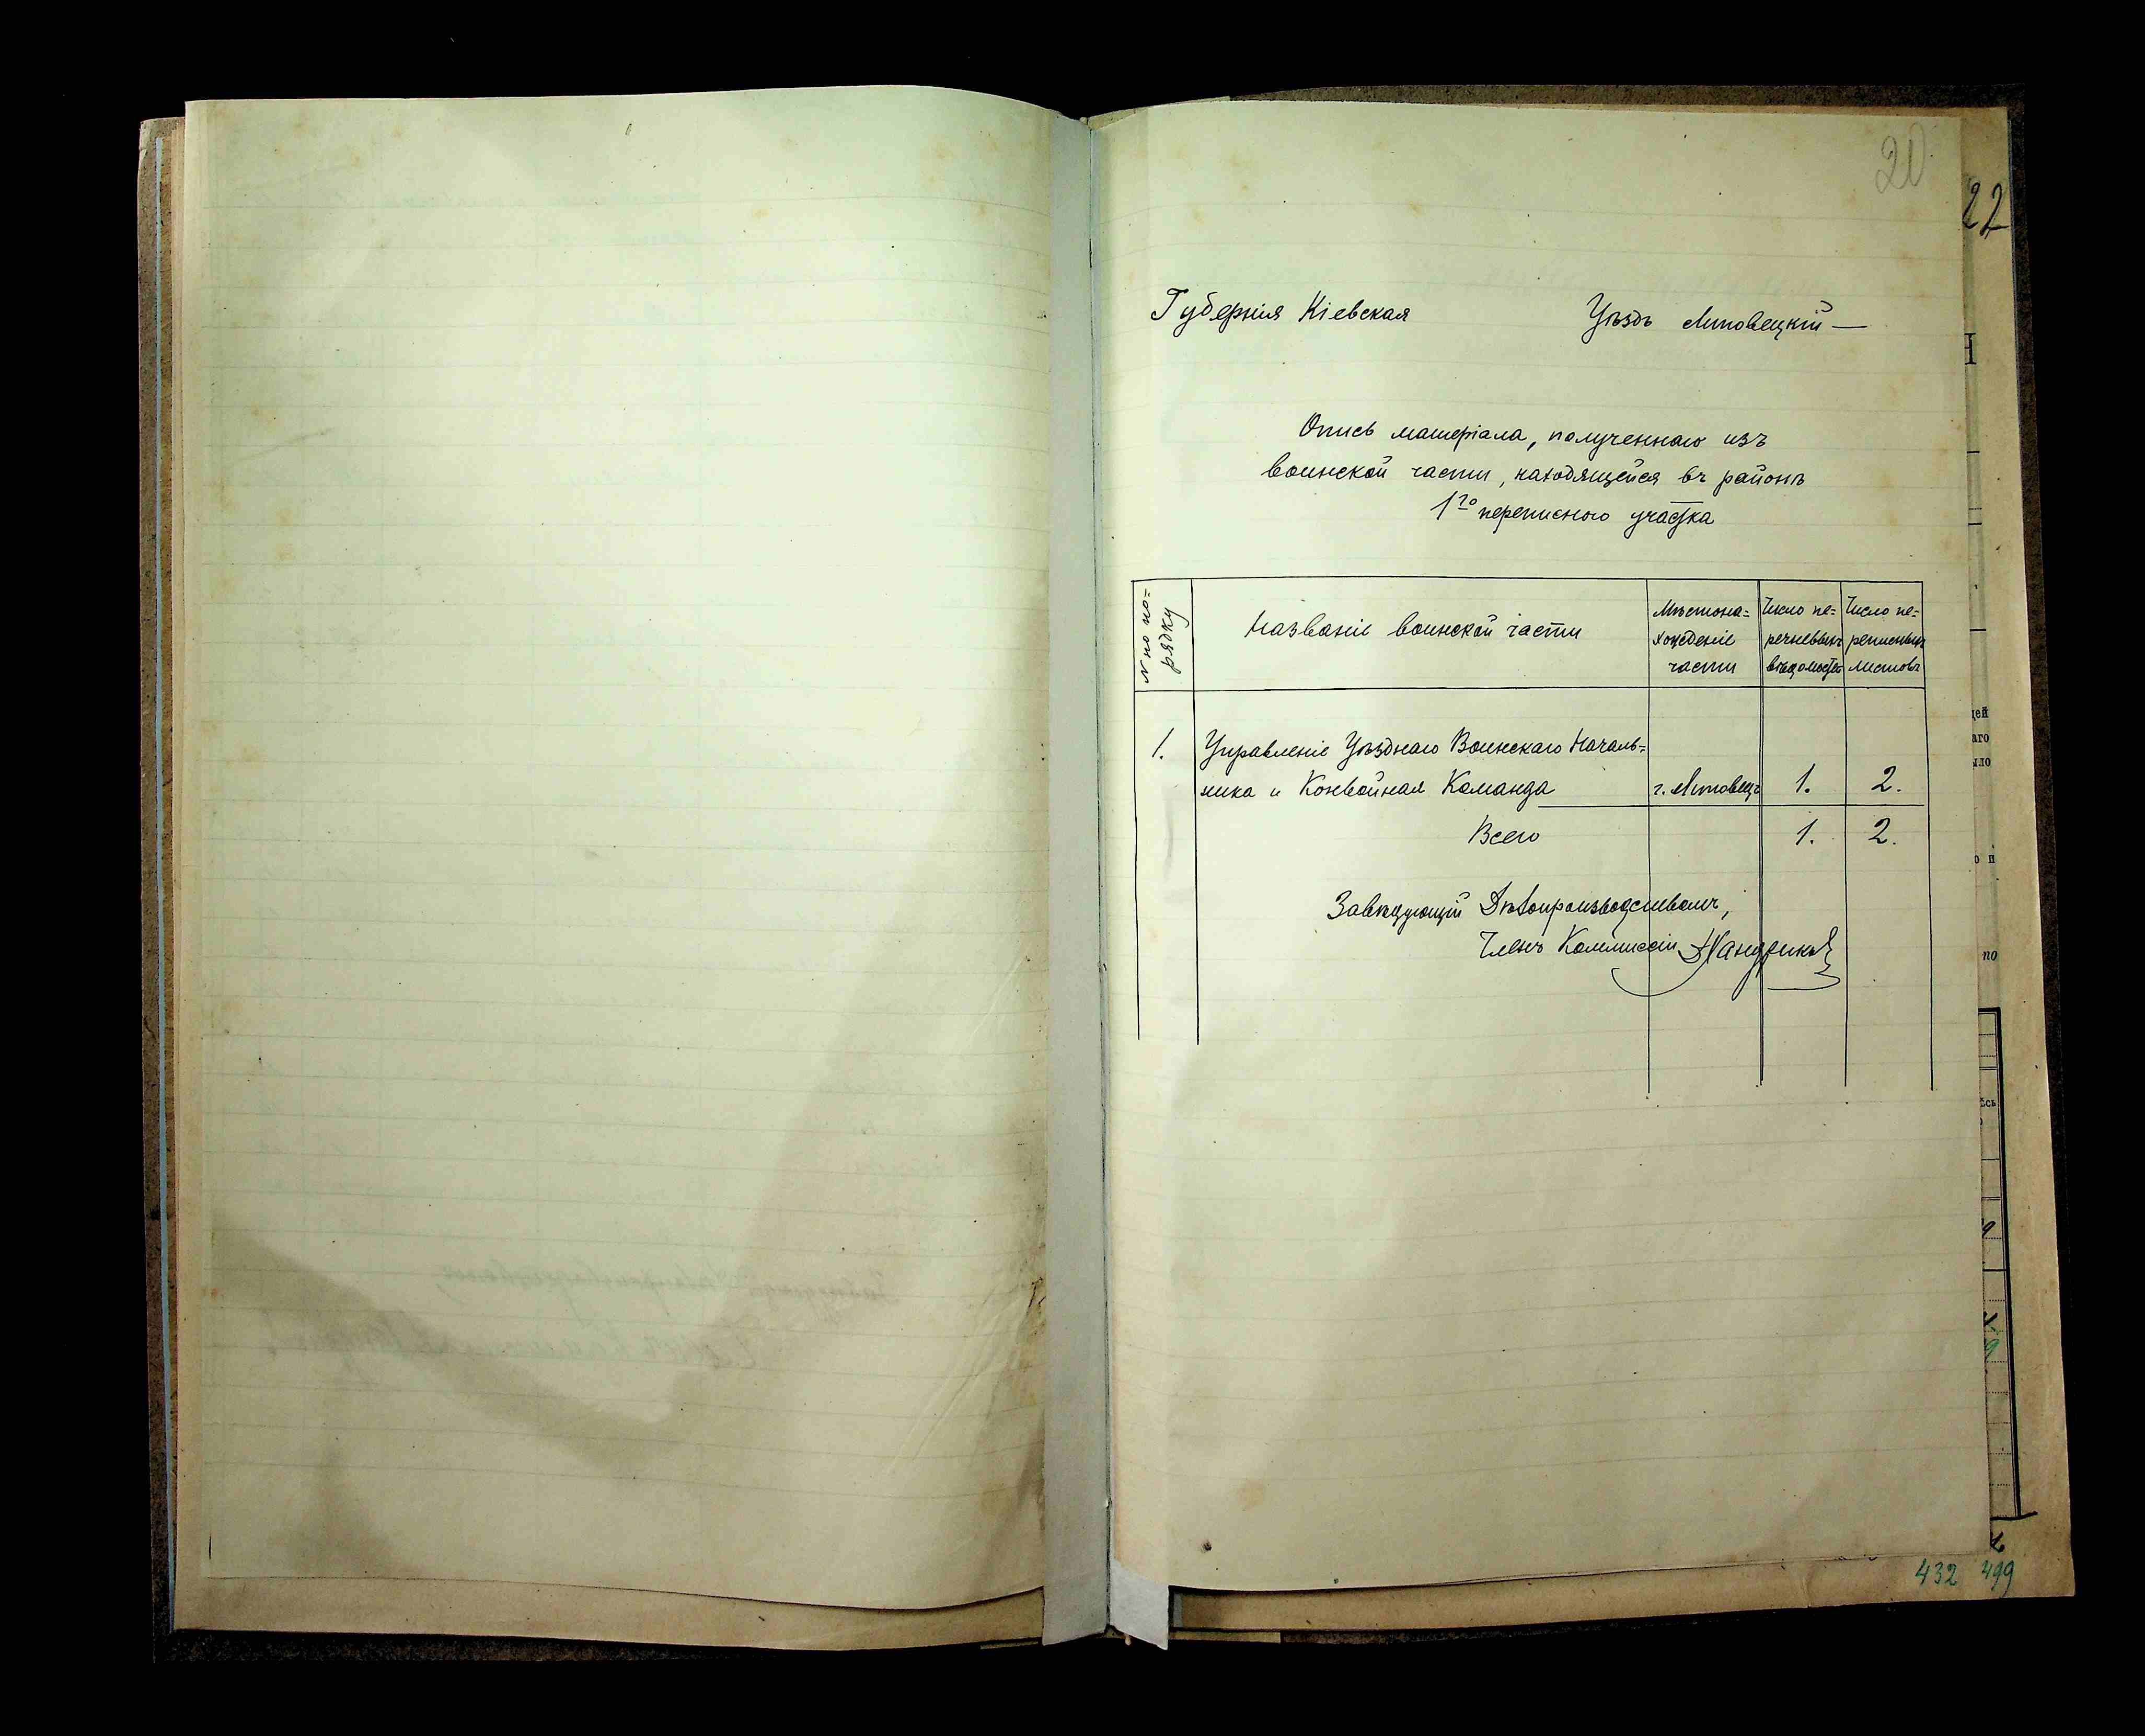 20
22
Губернія Кіевская Уѣздъ Липовецкій —
Опись матеріала, полученнаго изъ
воинской части, находящейся въ районѣ
1го переписного участка
№ по по=
рядку
Названіе воинской части
Мѣстона=
хожденіе
части
Число пе=
речневыхъ
вѣдомостей
Число пе=
реписныхъ
листовъ
1. Управленіе Уѣзднаго Воинскаго Началь=
ника и Конвойная Команда г. Липовецъ 1. 2.
Всего 1. 2.
Завѣдующій Дѣлопроизводствомъ,
Членъ Коммиссіи
432 499